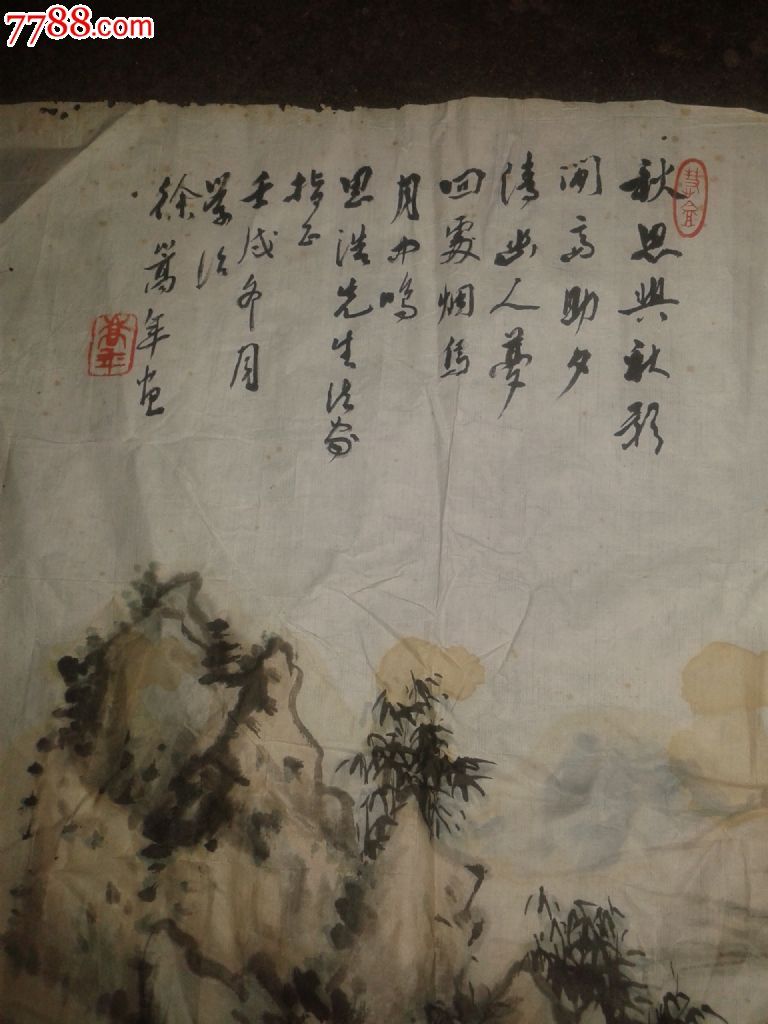 7788.com
秋思與秋影
閒高助夕
清幽人夢
回處烟
月中鳴
思浩先生法家
指正
壬戌冬月
徐篙年画